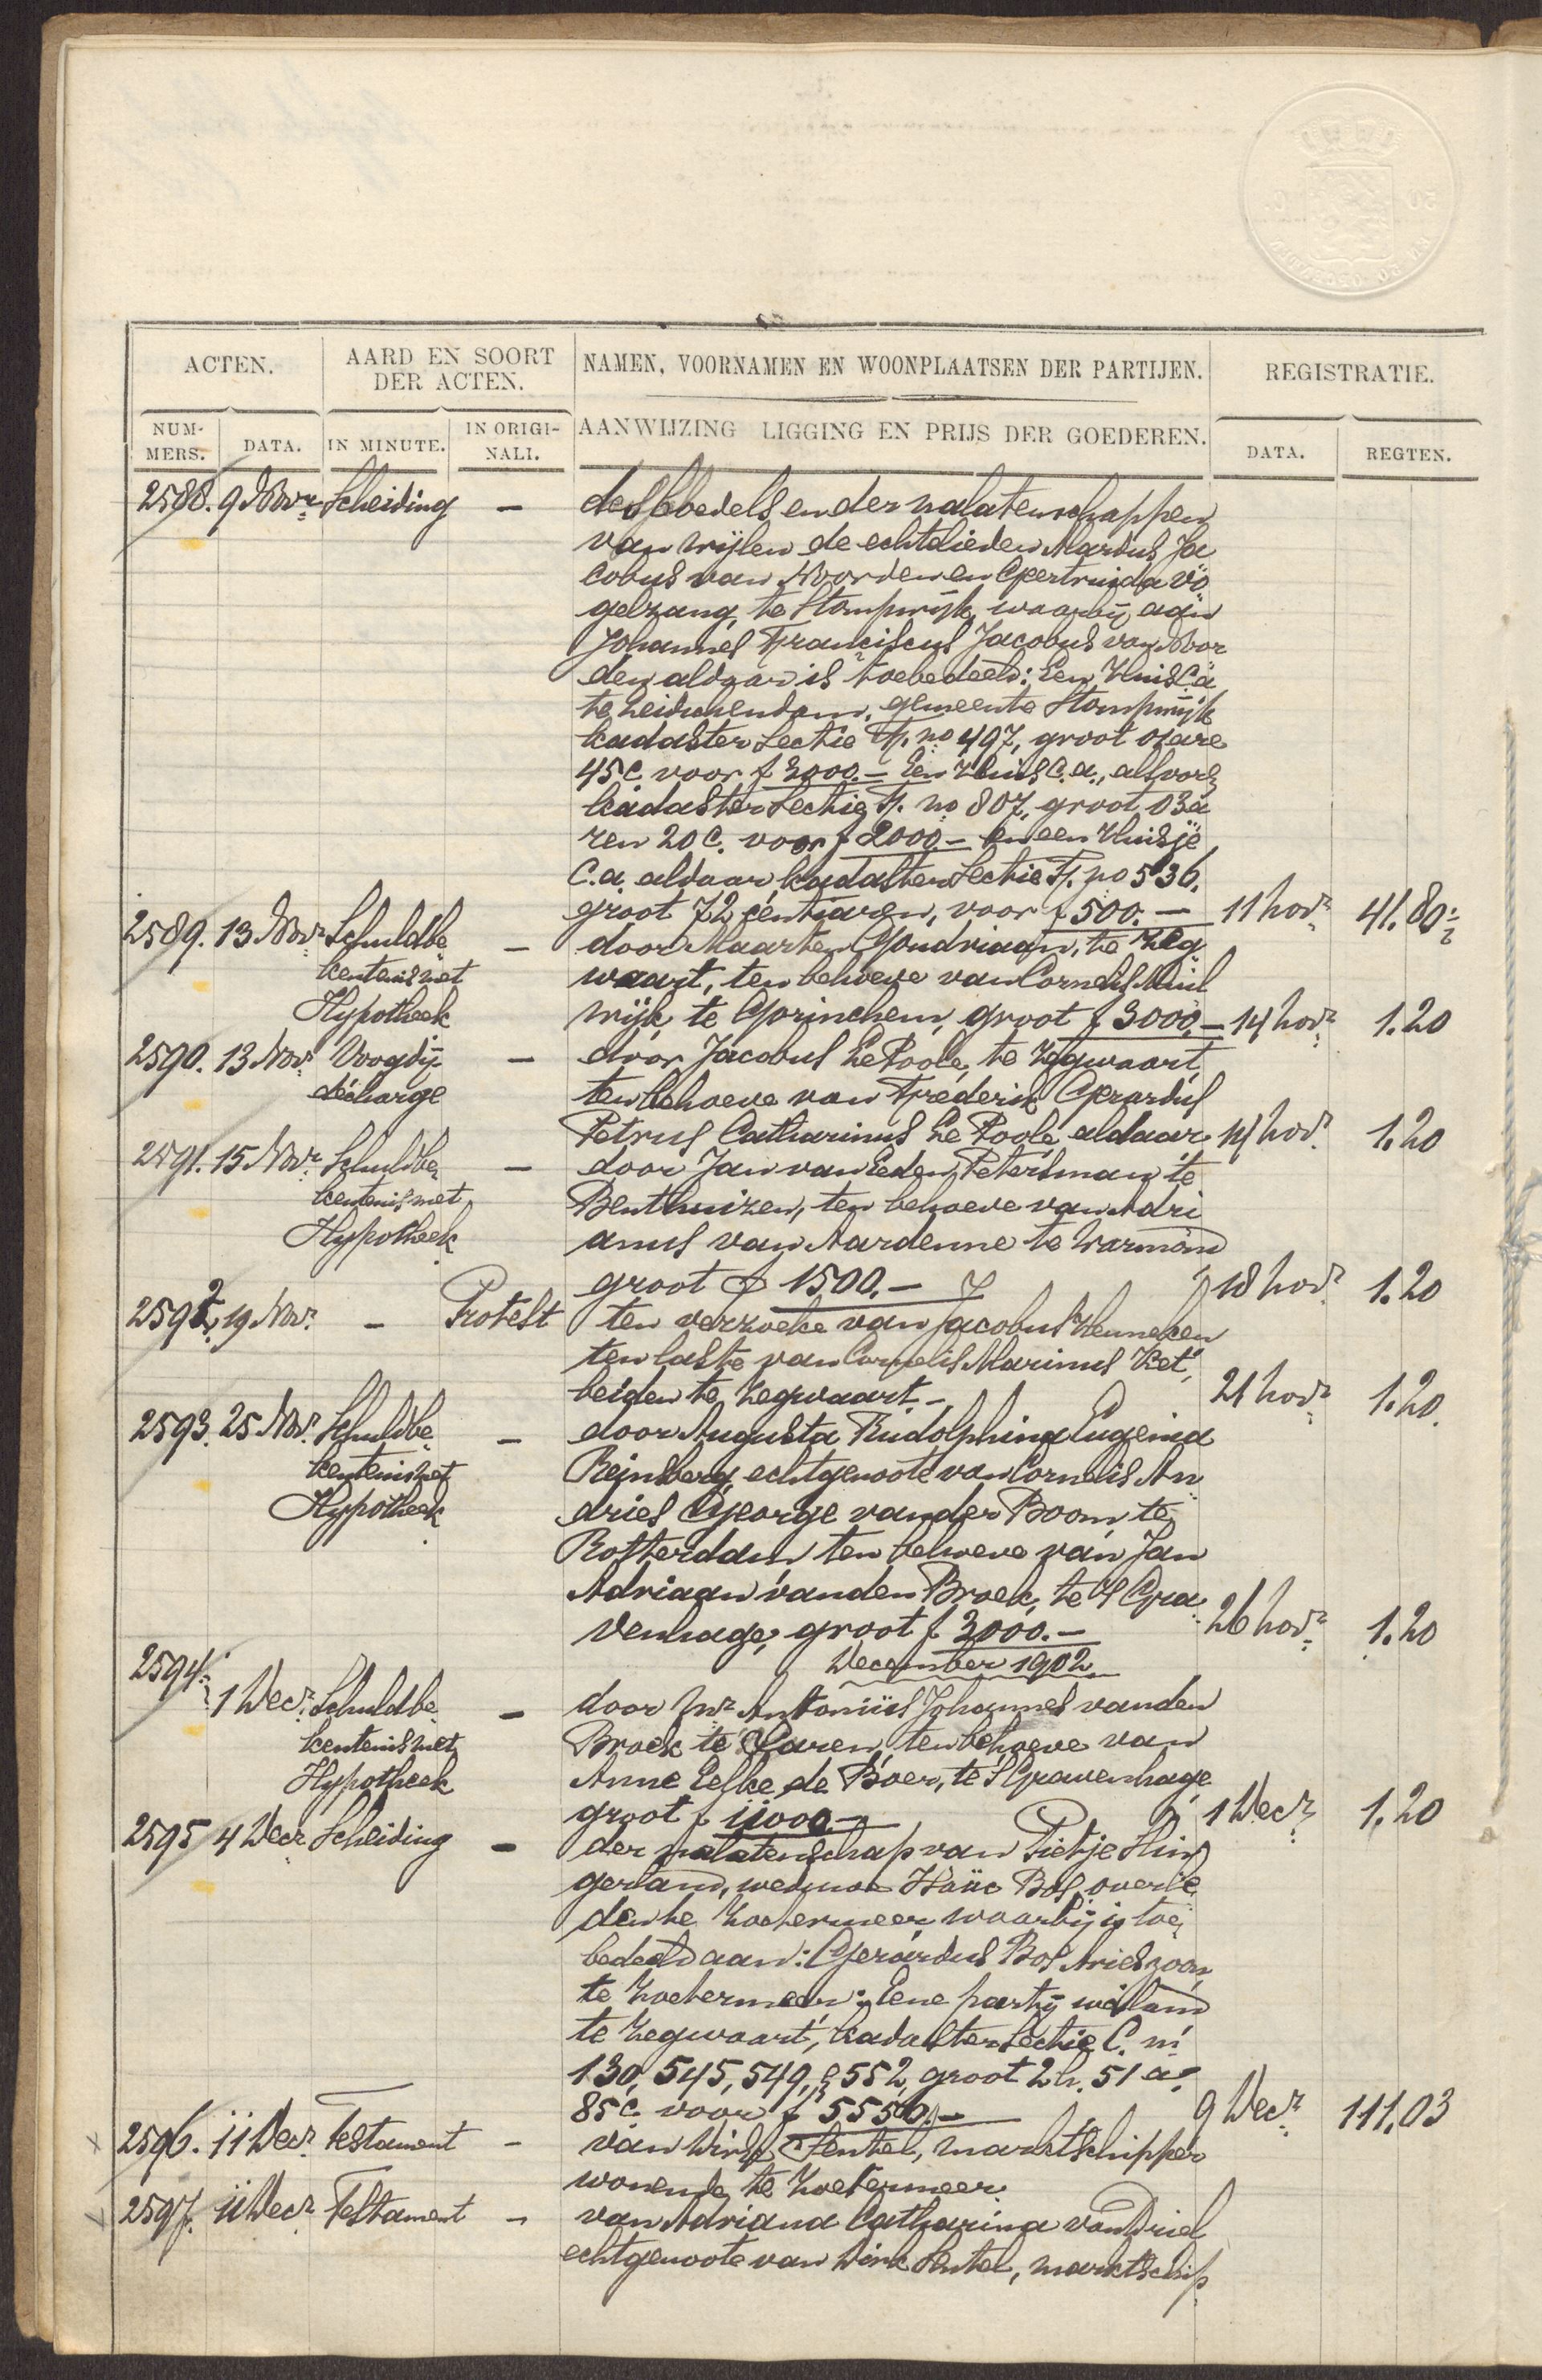 ACTEN.
AARD EN SOORT
DER ACTEN.
NAMEN, VOORNAMEN EN WOONPLAATSEN DER PARTIJEN.
REGISTRATIE.
NUM-
MERS.
DATA.
IN MINUTE.
IN ORIGI-
NALI.
AANWIJZING LIGGING EN PRIJS DER GOEDEREN.
DATA.
REGTEN.
2588. 9 Novr. Scheiding — des boedels en der nalatenschappen
van wijlen de echtelieden Marius Ja
cobus van Noorden en Geertruida Vo
gelzang, te Stompwijk, waarbij aan
Johannes Franciscus Jacobus van Noor
den aldaar is toebedeeld: Een Huis c.a
te Leidschendam, gemeente Stompwijk
kadaster Sectie F. no 497, groot 01 are
45 c. voor f 3000.— Een Huis c.a., als voor,
kadaster Sectie F. no 807, groot 03 a
ren 20 c. voor f 2000.— en een Huisje
c.a. aldaar, kadaster Sectie F. no 536,
groot 72 centiaren, voor f 500.— 11 Novr. 41.80
2589. 13 Novr. Schuldbe — door Maarten Goudriaan, te Zeg
kentenis met waart, ten behoeve van Cornelis Muil
Hypotheek wijk, te Gorinchem, groot f 3000.— 14 Novr. 1.20
2590. 13 Novr. Voogdij — door Jacobus Le Poole, te Zegwaart,
décharge ten behoeve van Frederik Gerardus
Petrus Catharinus Le Poole aldaar 14 Novr. 1.20
2591. 15 Novr. Schuldbe — door Jan van Eeden Petersman te
kentenis met Benthuizen, ten behoeve van Adri
Hypotheek anus van Aardenne te Warmond
groot f 1500.— 18 Novr. 1.20
2592. 19 Novr. — Protest ten verzoeke van Jacobus Henneken
ten laste van Cornelis Marinus Ket,
beiden te Zegwaart.— 21 Novr. 1.20
2593. 25 Novr. Schuldbe — door Augusta Rudolphina Eugenia
kentenis met Reinsberg, echtgenoote van Cornelis An
Hypotheek dries George van der Boom, te
Rotterdam, ten behoeve van Jan
Adriaan van den Broek, te 's Gra
venhage, groot f 3000.— 26 Novr. 1.20
December 1902
2594. 1 Decr. Schuldbe — door Mr. Antonius Johannes van den
kentenis met Broek te Haren, ten behoeve van
Hypotheek Anne Eelke de Boer, te 's Gravenhage
groot f 11000.— 1 Decr. 1.20
2595 4 Decr. Scheiding — der nalatenschap van Pietje Slin
gerland, weduwe Bos, overle
den te Zoetermeer waarbij is toe
bedeeld aan: Gerardus Bos Arieszoon,
te Zoetermeer: Eene partij weiland
te Zegwaart, kadaster Sectie C. nos
130, 545, 549, & 552, groot 2 h. 51 a.
85 c. voor f 5550.— 9 Decr. 111.03
2596. 11 Decr. Testament — van Dirk Sentel, marktschipper
wonende te Zoetermeer.
2597. 11 Decr. Testament — van Adriana Catharina van Driel
echtgenoote van Dirk Sentel, marktschip